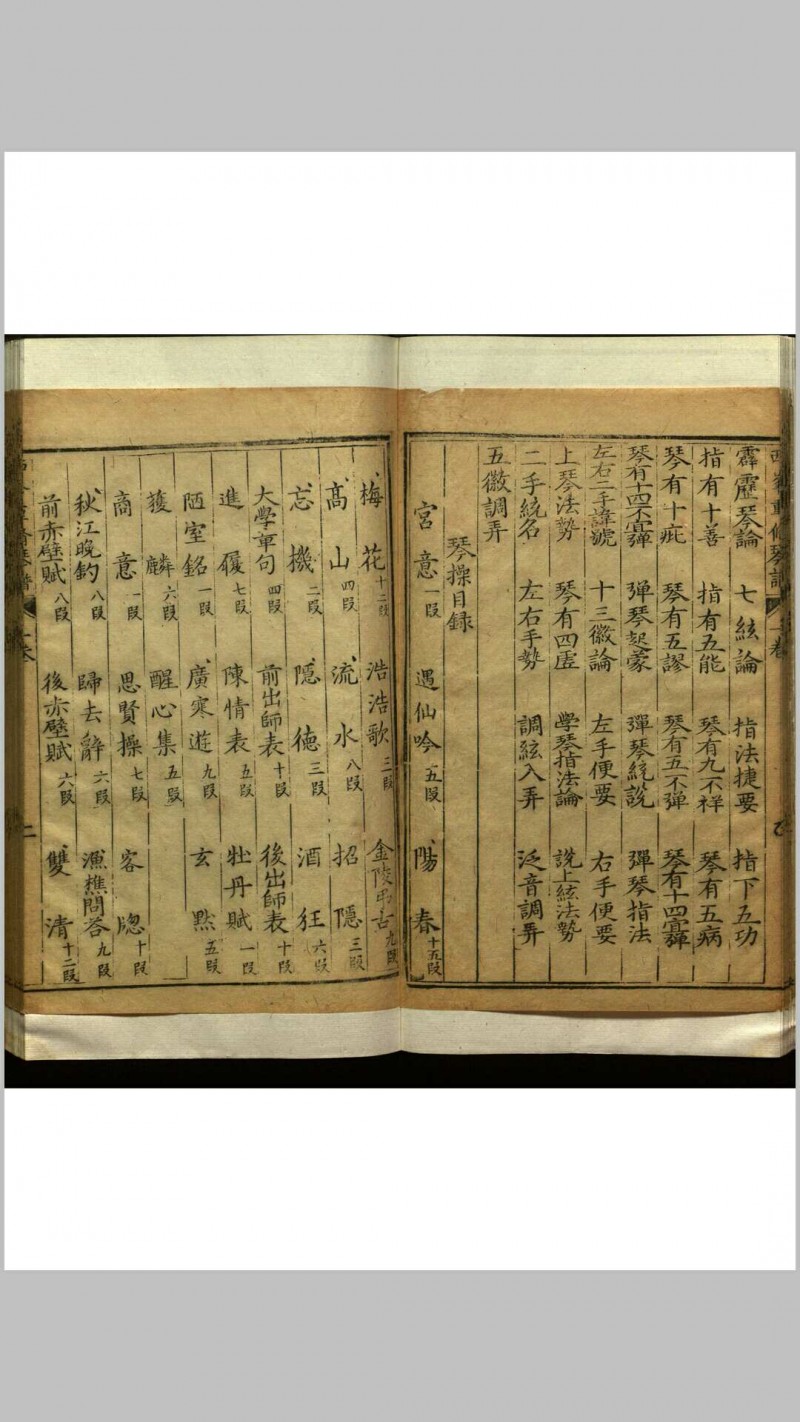 霹靂琴論 七絃論 指法捷要 指下五功
指有十善 指有五能 琴有九不祥 琴有五病
琴有十疵 琴有五謬 琴有五不弾 琴有十四宜彈
琴有十四不宜彈 弾琴啓蒙 彈琴統說 彈琴指法
左右二手諱號 十三徽論 左手便要 右手便要
上琴法勢 琴有四虚 學琴指法論 說上絃法勢
二手統名 左右手勢 調絃入弄 泛音調弄
五徽調弄
琴操目録
宮意一段 遇仙吟五段 陽春十五段
梅花十二段 浩浩歌三段 金陵弔古九段
髙山四段 流水八段 招隠三段
忘機二段 隠德三段 酒狂六段
大學章句四段 前出師表十段 後出師表十段
進履七段 陳情表五段 牡丹賦一段
陋室銘一段 廣寒遊九段 玄黙五段
獲麟六段 醒心集五段
商意一段 思賢操七段 客牎十段
秋江晚釣八段 歸去辭六段 漁樵問答九段
前赤壁賦八段 後赤壁賦六段 雙清十二段